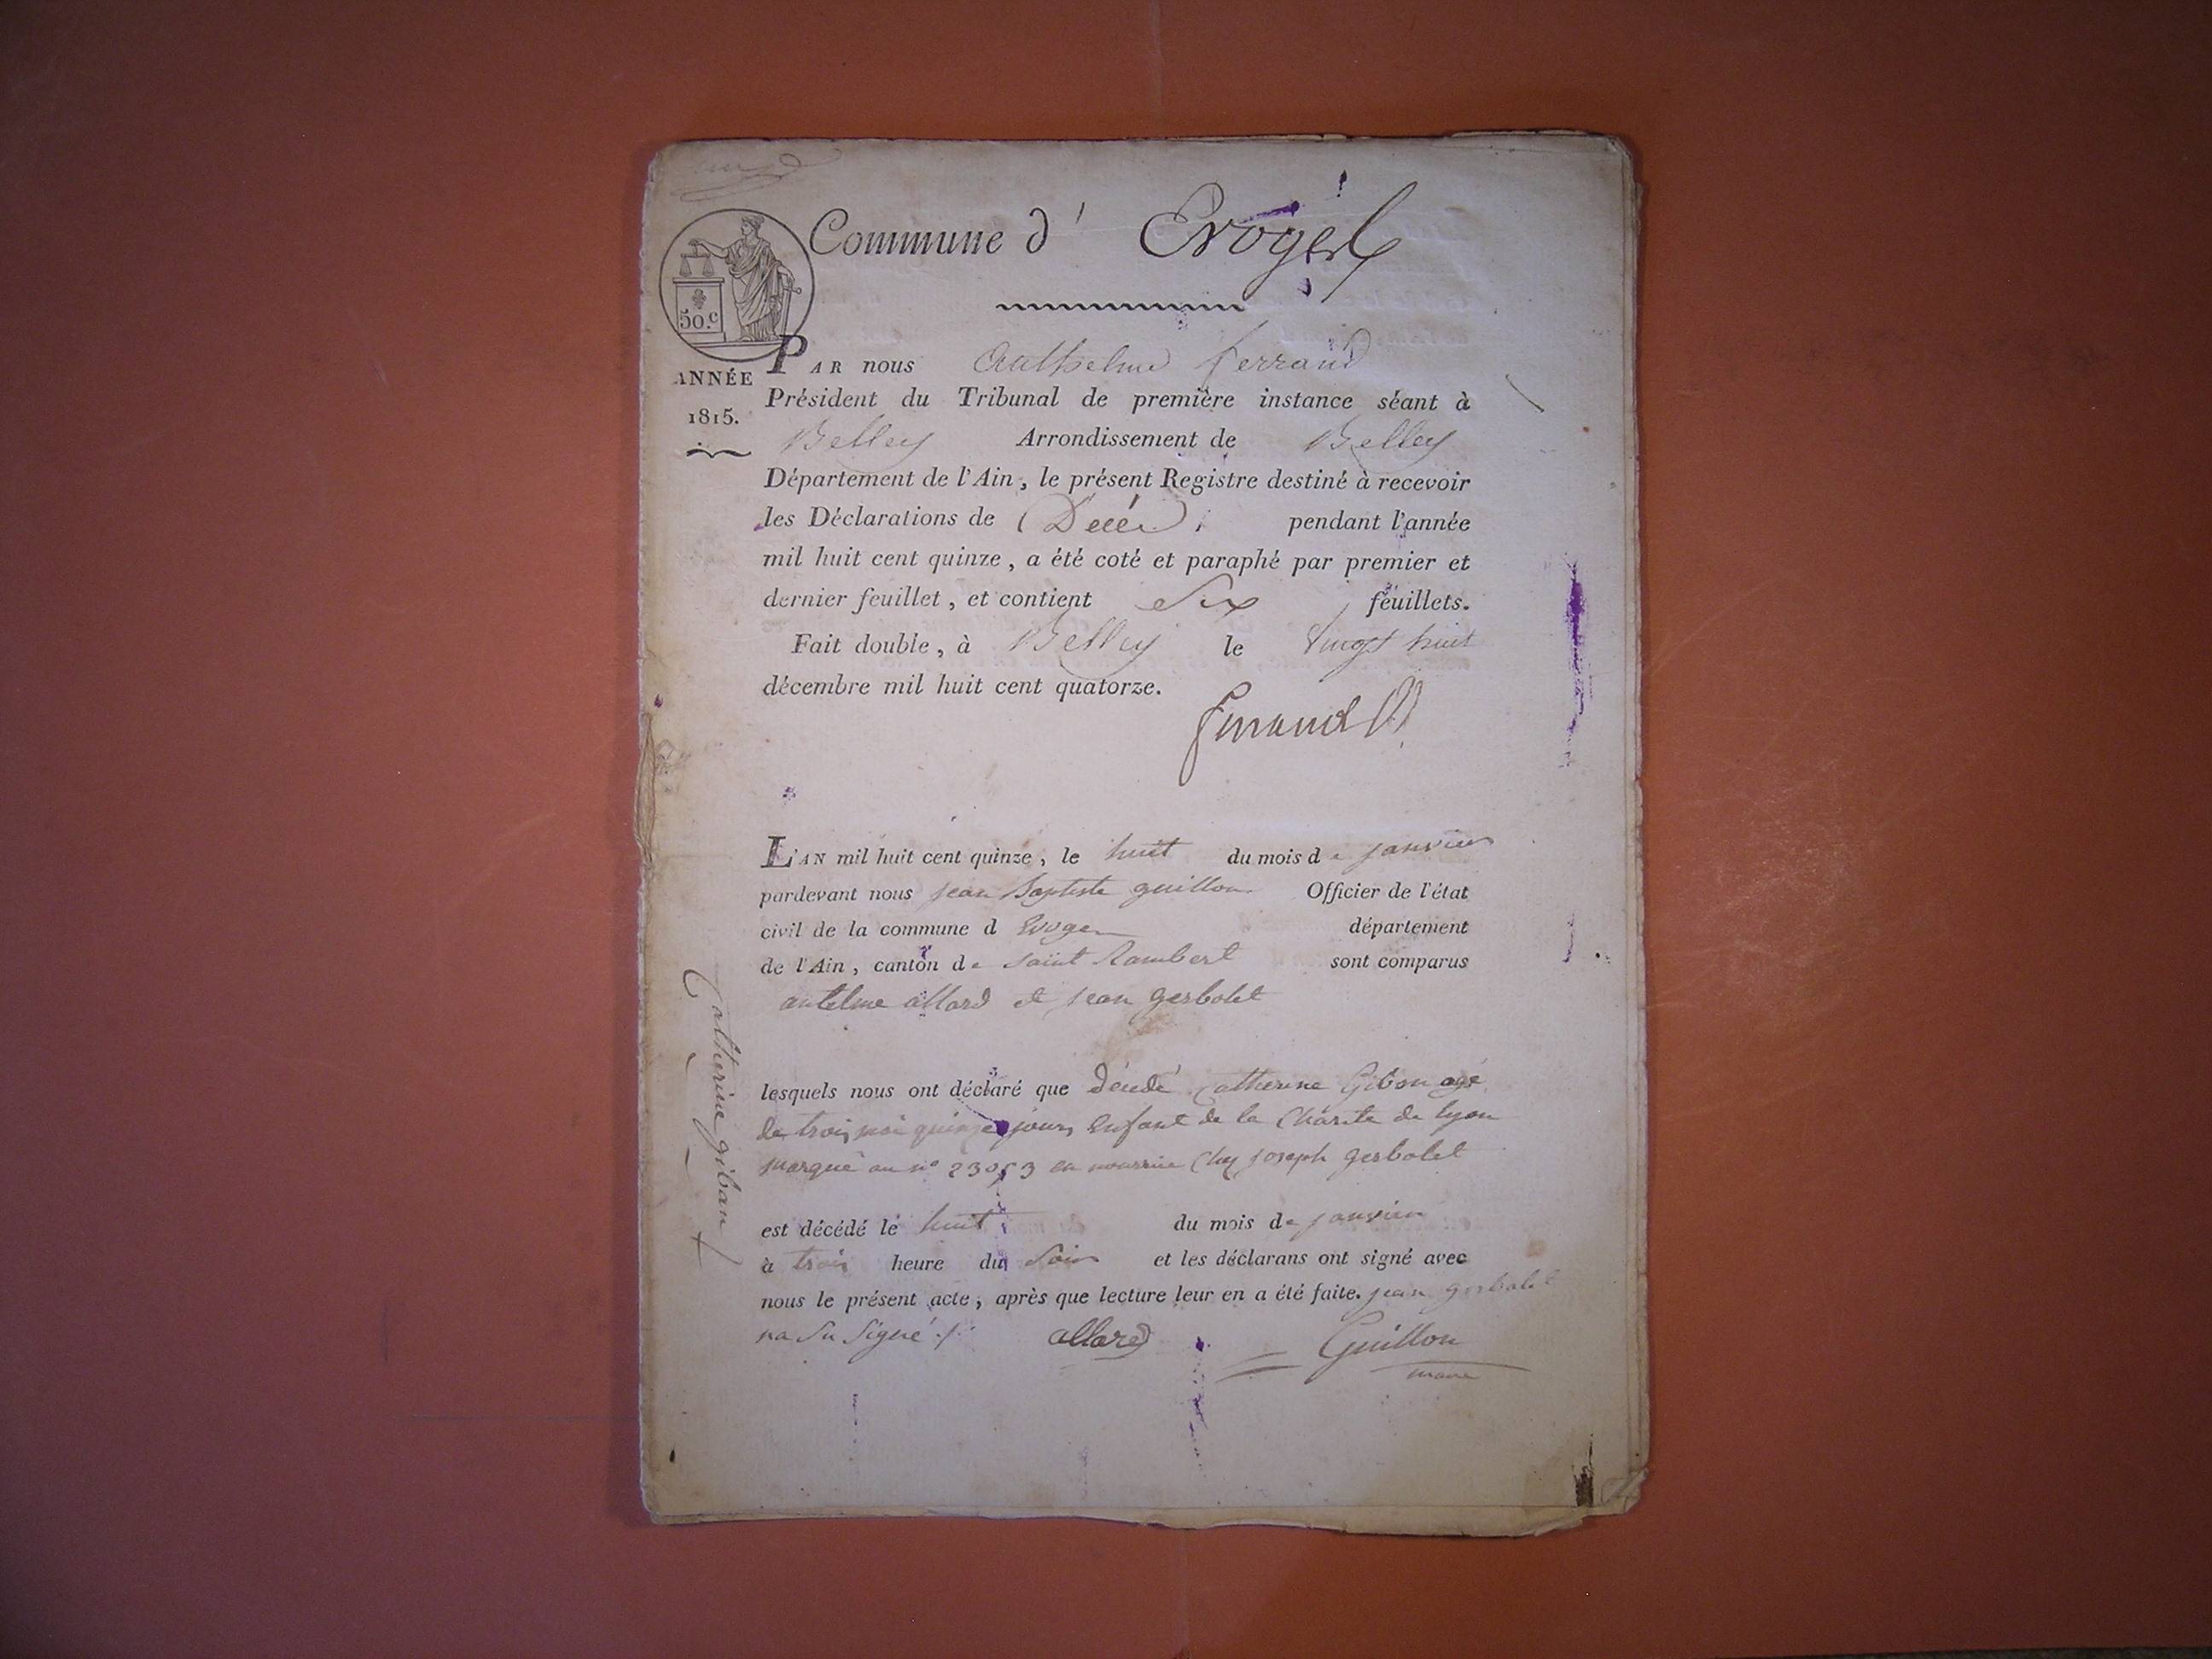 Commune d' Evoges
50.c
PAR nous Anthelme ferrand
ANNÉE
1815.
Président du Tribunal de première instance séant à
Belley Arrondissement de Belley
Département de l'Ain, le présent Registre destiné à recevoir
les Déclarations de Décès pendant l'année
mil huit cent quinze, a été coté et paraphé par premier et
dernier feuillet, et contient Six feuillets.
Fait double, à Belley le Vingt huit
décembre mil huit cent quatorze.
ferrand
L'AN mil huit cent quinze, le huit du mois de janvier
pardevant nous jean Baptiste guillon Officier de l'état
civil de la commune d Evoges département
de l'Ain, canton de saint Rambert sont comparus
antelme allard et jean gerbolet
Catherine giban
lesquels nous ont déclaré que décédé Catherine Gibon agé
de trois moi quinze jours enfant de la Charite de lyon
marqué au n° 23053 en nourrice Chez joseph gerbolet
est décédé le huit du mois de janvier
à trois heure du soir et les déclarans ont signé avec
nous le présent acte, après que lecture leur en a été faite. jean gerbolet
na su signé ./. allard Guillon
maire